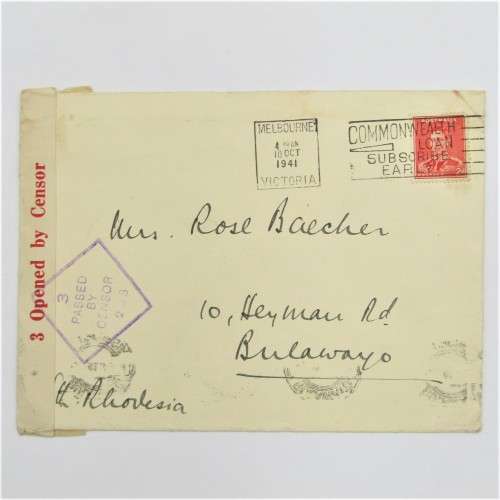 3 Opened by Censor
3
PASSED
BY
CENSOR
MELBOURNE
10 OCT
1941
VICTORIA
COMMONWEALTH
LOAN
SUBSCRIBE
EARLY
Mrs. Rose Baecher
10, Heyman Rd.
Bulawayo
Sth. Rhodesia